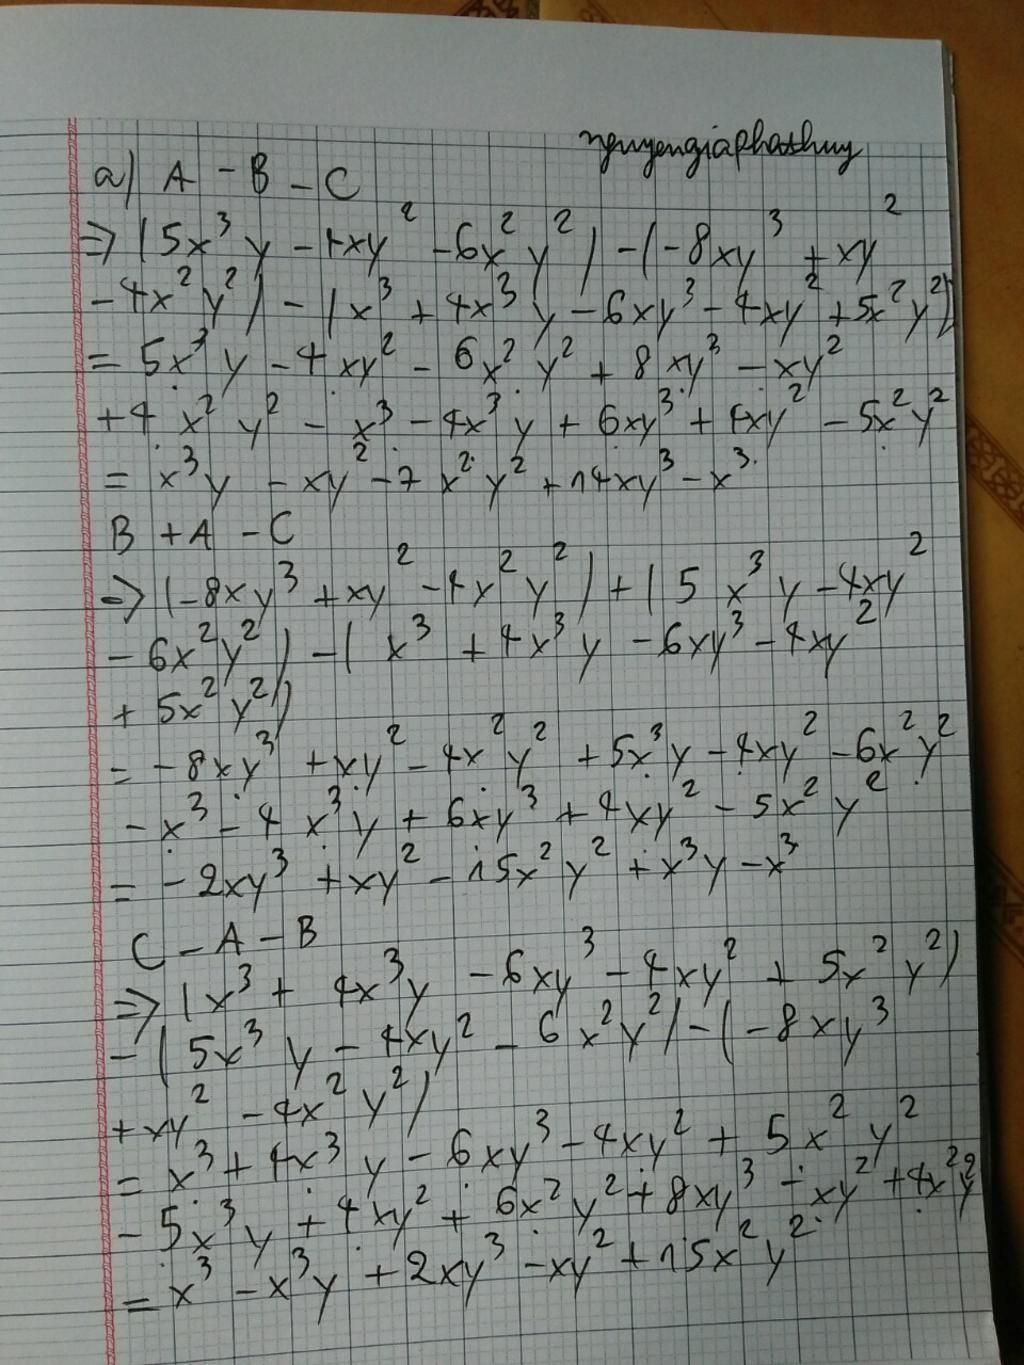 nguyengiaphathuy
a) A - B - C
⇒ (5x³y - 4xy² - 6x²y²) - (-8xy³ + xy²
- 4x²y²) - (x³ + 4x³y - 6xy³ - 4xy² + 5x²y²)
= 5x³y - 4xy² - 6x²y² + 8xy³ - xy²
+ 4x²y² - x³ - 4x³y + 6xy³ + 4xy² - 5x²y²
= x³y - xy² - 7x²y² + 14xy³ - x³
B + A - C
⇒ (-8xy³ + xy² - 4x²y²) + (5x³y - 4xy²
- 6x²y²) - (x³ + 4x³y - 6xy³ - 4xy²
+ 5x²y²)
= -8xy³ + xy² - 4x²y² + 5x³y - 4xy² - 6x²y²
- x³ - 4x³y + 6xy³ + 4xy² - 5x²y²
= -2xy³ + xy² - 15x²y² + x³y - x³
C - A - B
⇒ (x³ + 4x³y - 6xy³ - 4xy² + 5x²y²)
- (5x³y - 4xy² - 6x²y²) - (-8xy³
+ xy² - 4x²y²)
= x³ + 4x³y - 6xy³ - 4xy² + 5x²y²
- 5x³y + 4xy² + 6x²y² + 8xy³ - xy² + 4x²y²
= x³ - x³y + 2xy³ - xy² + 15x²y²